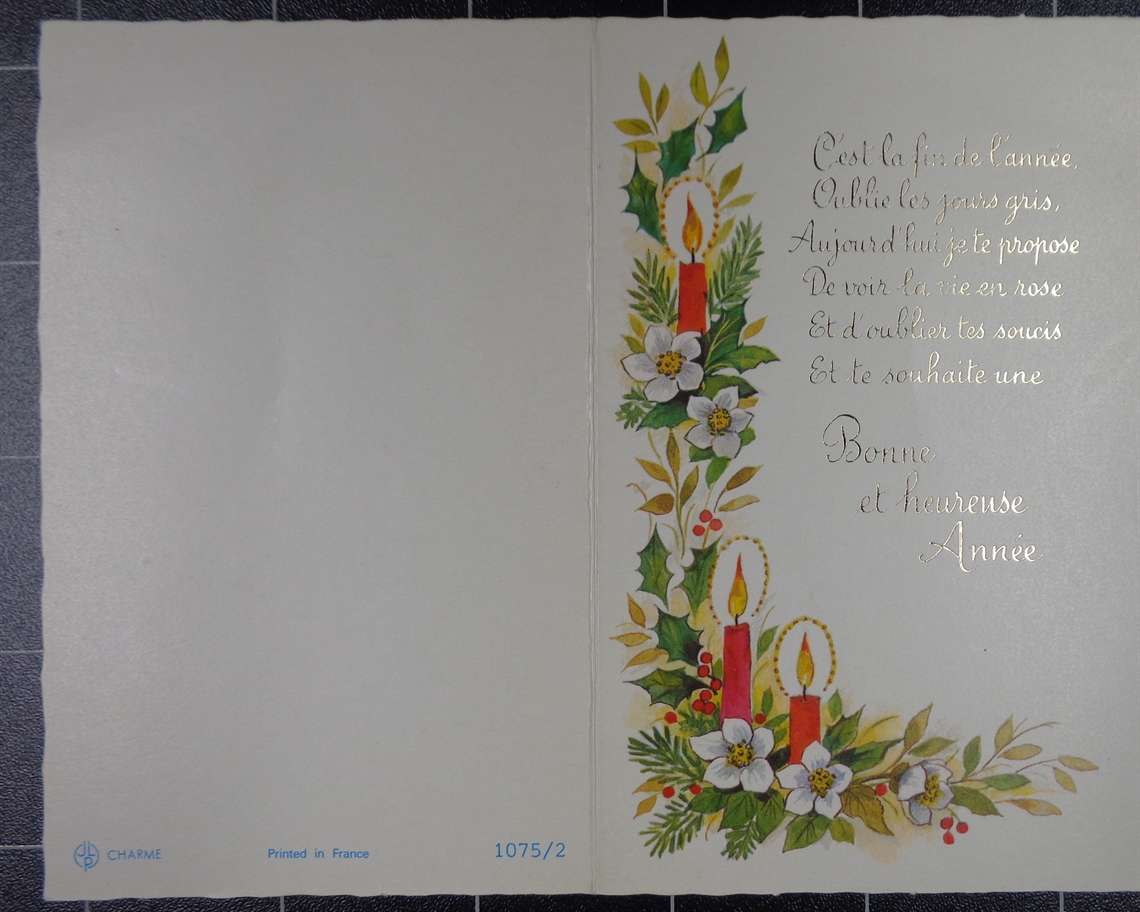 C'est la fin de l'année,
Oublie les jours gris,
Aujourd'hui je te propose
De voir la vie en rose
Et d'oublier tes soucis
Et te souhaite une
Bonne
et heureuse
Année
JLP CHARME
Printed in France
1075/2